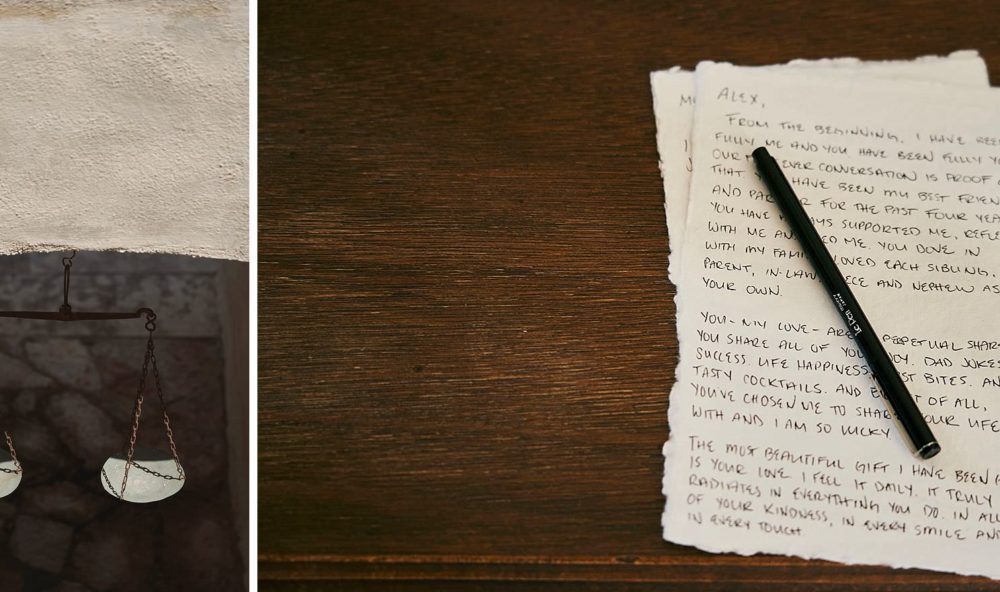 M
ALEX,
FROM THE BEGINNING, I HAVE BEEN
FULLY ME AND YOU HAVE BEEN FULLY
OUR EVER CONVERSATION IS PROOF
THAT HAVE BEEN MY BEST FRIEN
AND FOR THE PAST FOUR YEA
YOU HAVE SUPPORTED ME, REFLE
WITH ME AN ED ME. YOU DOVE IN
WITH MY FAMI LOVED EACH SIBLING,
PARENT, IN-LAW ECE AND NEPHEW AS
YOUR OWN.
YOU - MY LOVE - ARE PERPETUAL SHAR
YOU SHARE ALL OF YOU DAD JOKES
SUCCESS. LIFE HAPPINESS. ST BITES. AN
TASTY COCKTAILS. AND T OF ALL,
YOU'VE CHOSEN ME TO SHAR YOUR LIFE
WITH AND I AM SO LUCKY
THE MOST BEAUTIFUL GIFT I HAVE BEEN
IS YOUR LOVE I FEEL IT DAILY. IT TRULY
RADIATES IN EVERYTHING YOU DO. IN ALL
OF YOUR KINDNESS, IN EVERY SMILE AN
IN EVERY TOUCH
Le Pen